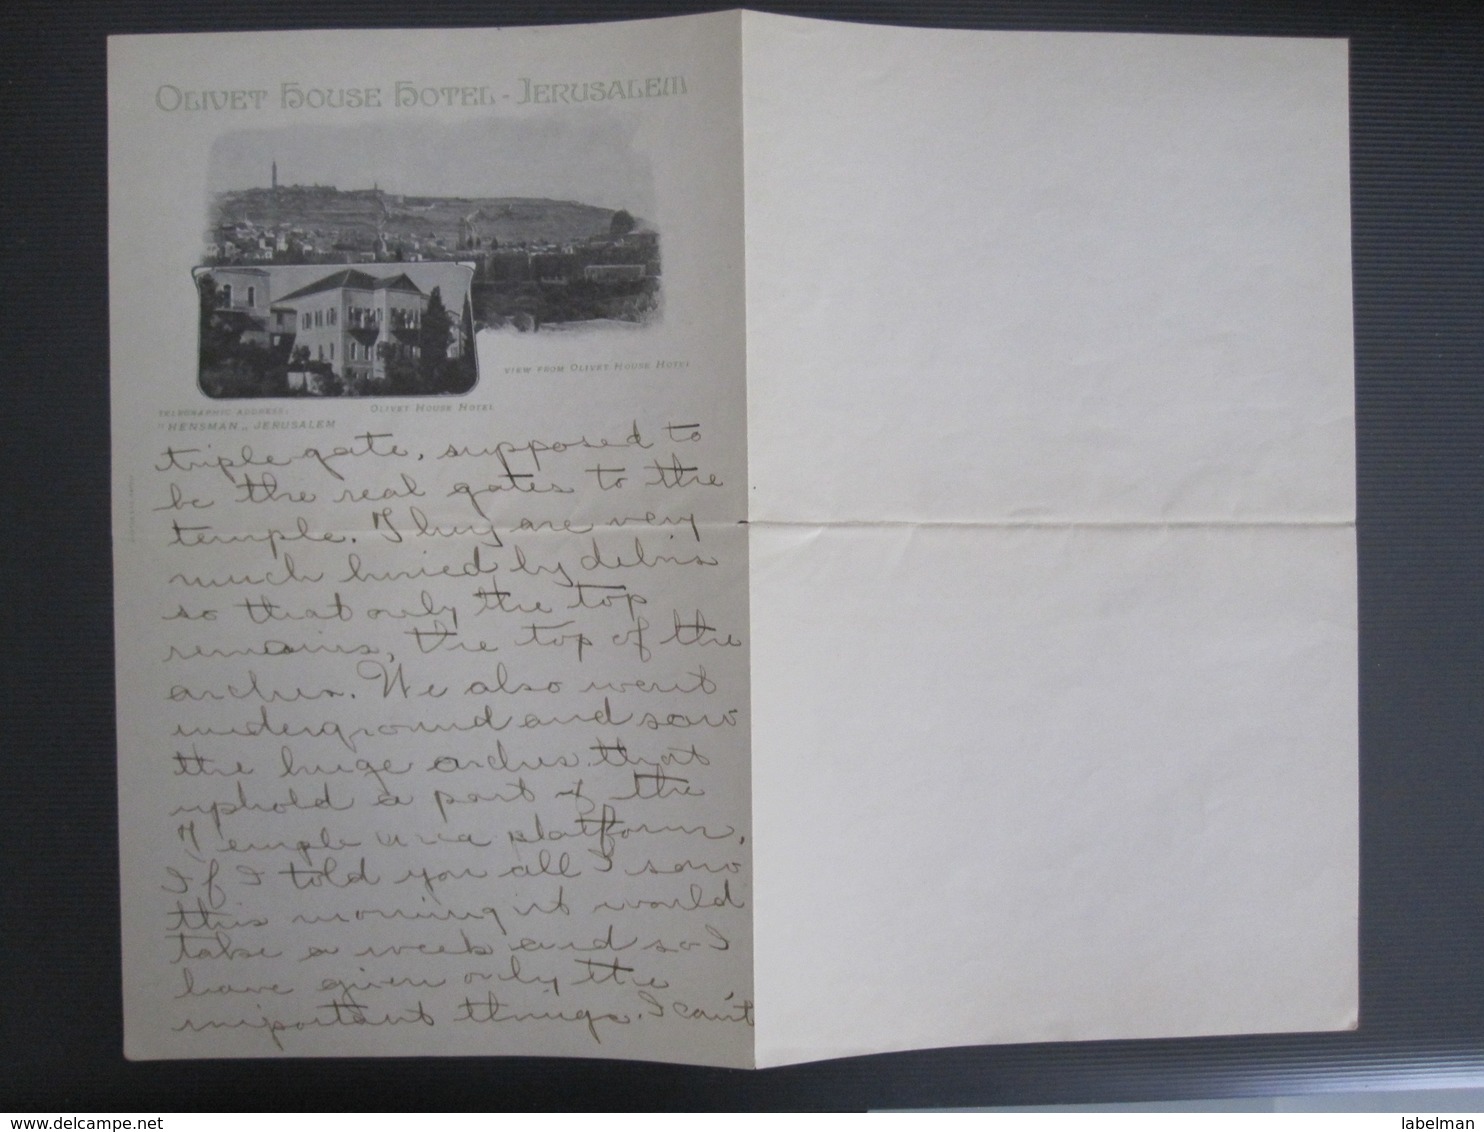 OLIVET HOUSE HOTEL - JERUSALEM
VIEW FROM OLIVET HOUSE HOTEL
OLIVET HOUSE HOTEL
TELEGRAPHIC ADDRESS:
"HENSMAN„ JERUSALEM
triple gate, supposed to
be the real gates to the
temple. They are very
much buried by debris
so that only the top
remains, the top of the
arches. We also went
underground and saw
the huge arches that
uphold a part of the
Temple area platform.
If I told you all I saw
this morning it would
take a week and so I
have given only the
important things. I can't
labelman